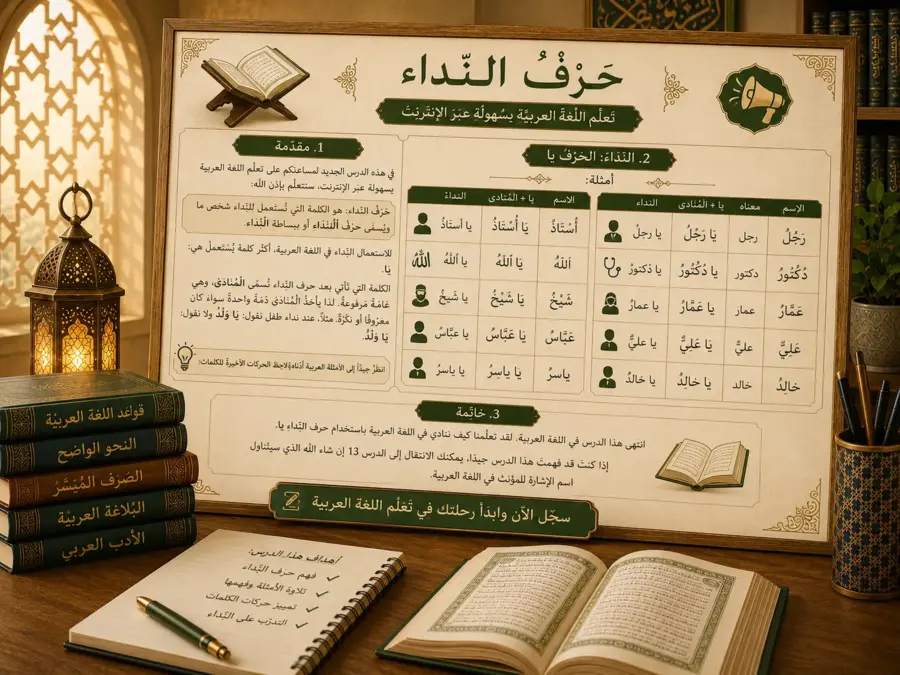 حَرْفُ النِّداء
تَعلَّم اللُّغَةَ العربيَّة بِسُهولَةٍ عَبَرَ الإنتَرنِتْ
1. مقدّمة
في هذه الدرس الجديد لمساعدتكم على تعلّم اللغة العربية
بسهولة عبر الإنترنت، سنتعلّم بإذن الله:
حَرْفُ النِّداء: هو الكلمة التي تُستعمل للنِّداء شخص ما
ويُسمّى حرفُ الْنِّدَاءِ أو ببساطة الْنِّداء.
للاستعمال النِّداء في اللغة العربية، أكثر كلمة يُستعمل هي:
يَا.
الكلمة التي تَأتي بعد حرف النِّداء تُسمّى المُنادَى، وهي
عَامَةً مَرفوعةٌ. لذا يأخذُ الْمُنَادَى ضَمّةً واحدةً سواءً كان
معروفًا أو نَكِرَةً. مثلاً، عند نداء طفل نقول: يَا وَلَدُ ولا نقول:
يَا وَلَدٌ.
انظُرْ جيدًا إلى الأمثلة العربية أدناه ولاحِظ الحركات الأخيرةُ للكلمات:
2. النِّدَاءُ: الحَرْفُ يا
أمثلة:
الاسم معناه يا + الْمُنَادى النداءُ
رَجُلٌ رجل يَا رَجُلُ يا رجلُ
دُكْتُورٌ دكتور يَا دُكْتُورُ يا دُكتورُ
عَمَّارٌ عمار يَا عَمَّارُ يا عمارُ
عَلِيٌّ عليٌّ يَا عَلِيُّ يا عليُّ
خالِدٌ خالد يَا خالِدُ يا خالدُ
الاسم يا + الْمُنَادى النداءُ
أُسْتَاذٌ يَا أُسْتَاذُ يا أستاذُ
اَللهُ يَا اَللهُ يا اللهُ اللهُ
شَيْخٌ يَا شَيْخُ يا شيخُ
عَبَّاسٌ يَا عَبَّاسُ يا عبَّاسُ
ياسرٌ يَا ياسِرُ يا ياسرُ
3. خاتِمة
انتهى هذا الدرس في اللغة العربية. لقد تعلّمنا كيف ننادي في اللغة العربية باستخدام حرف النِّداءِ يا.
إذا كنتَ قد فهمتَ هذا الدرس جيدًا، يمكنك الانتقال إلى الدرس 13 إن شاء الله الذي سيتناول
اسم الإشارة للمؤنث في اللغة العربية.
سجّل الآن وابدَأ رحلتك في تَعَلُّم اللغة العربية
قواعد اللغة العربيّة
النحو الواضح
الصَرف المُيَسَّرُ
البْلاغة العربيّة
الأدب العربي
أهداف هذا الدرس:
فهم حرف النِّداء
تلاوة الأمثلة وفهمها
تمييز حركات الكلمات
التدرّب على النِّداء